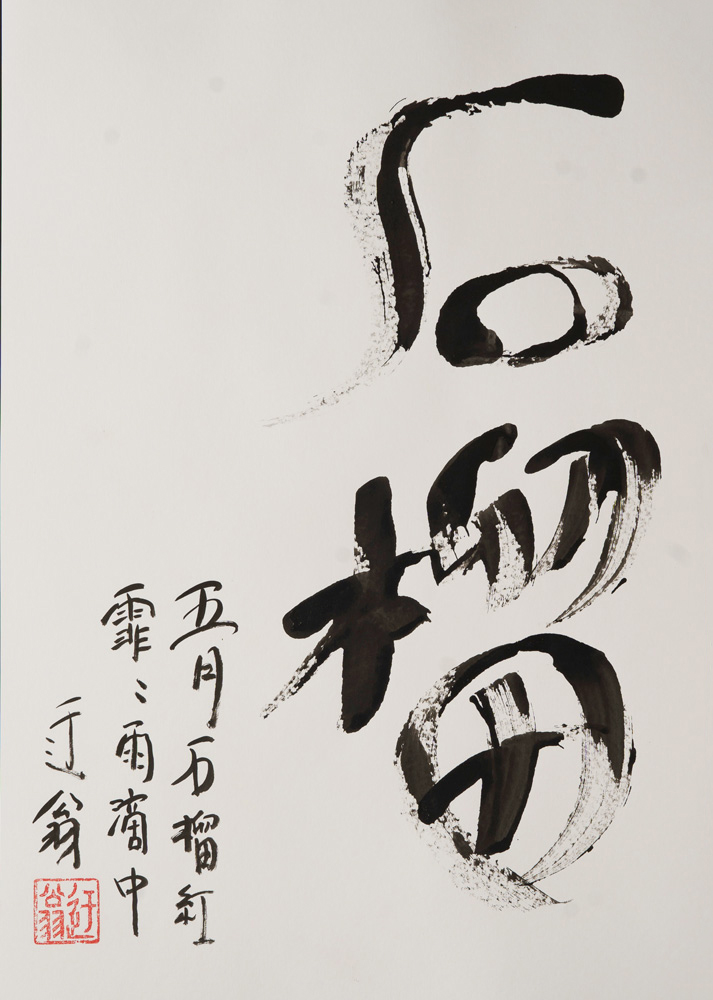 石榴
五月石榴紅
霏〻雨滴中
迂翁
迂翁